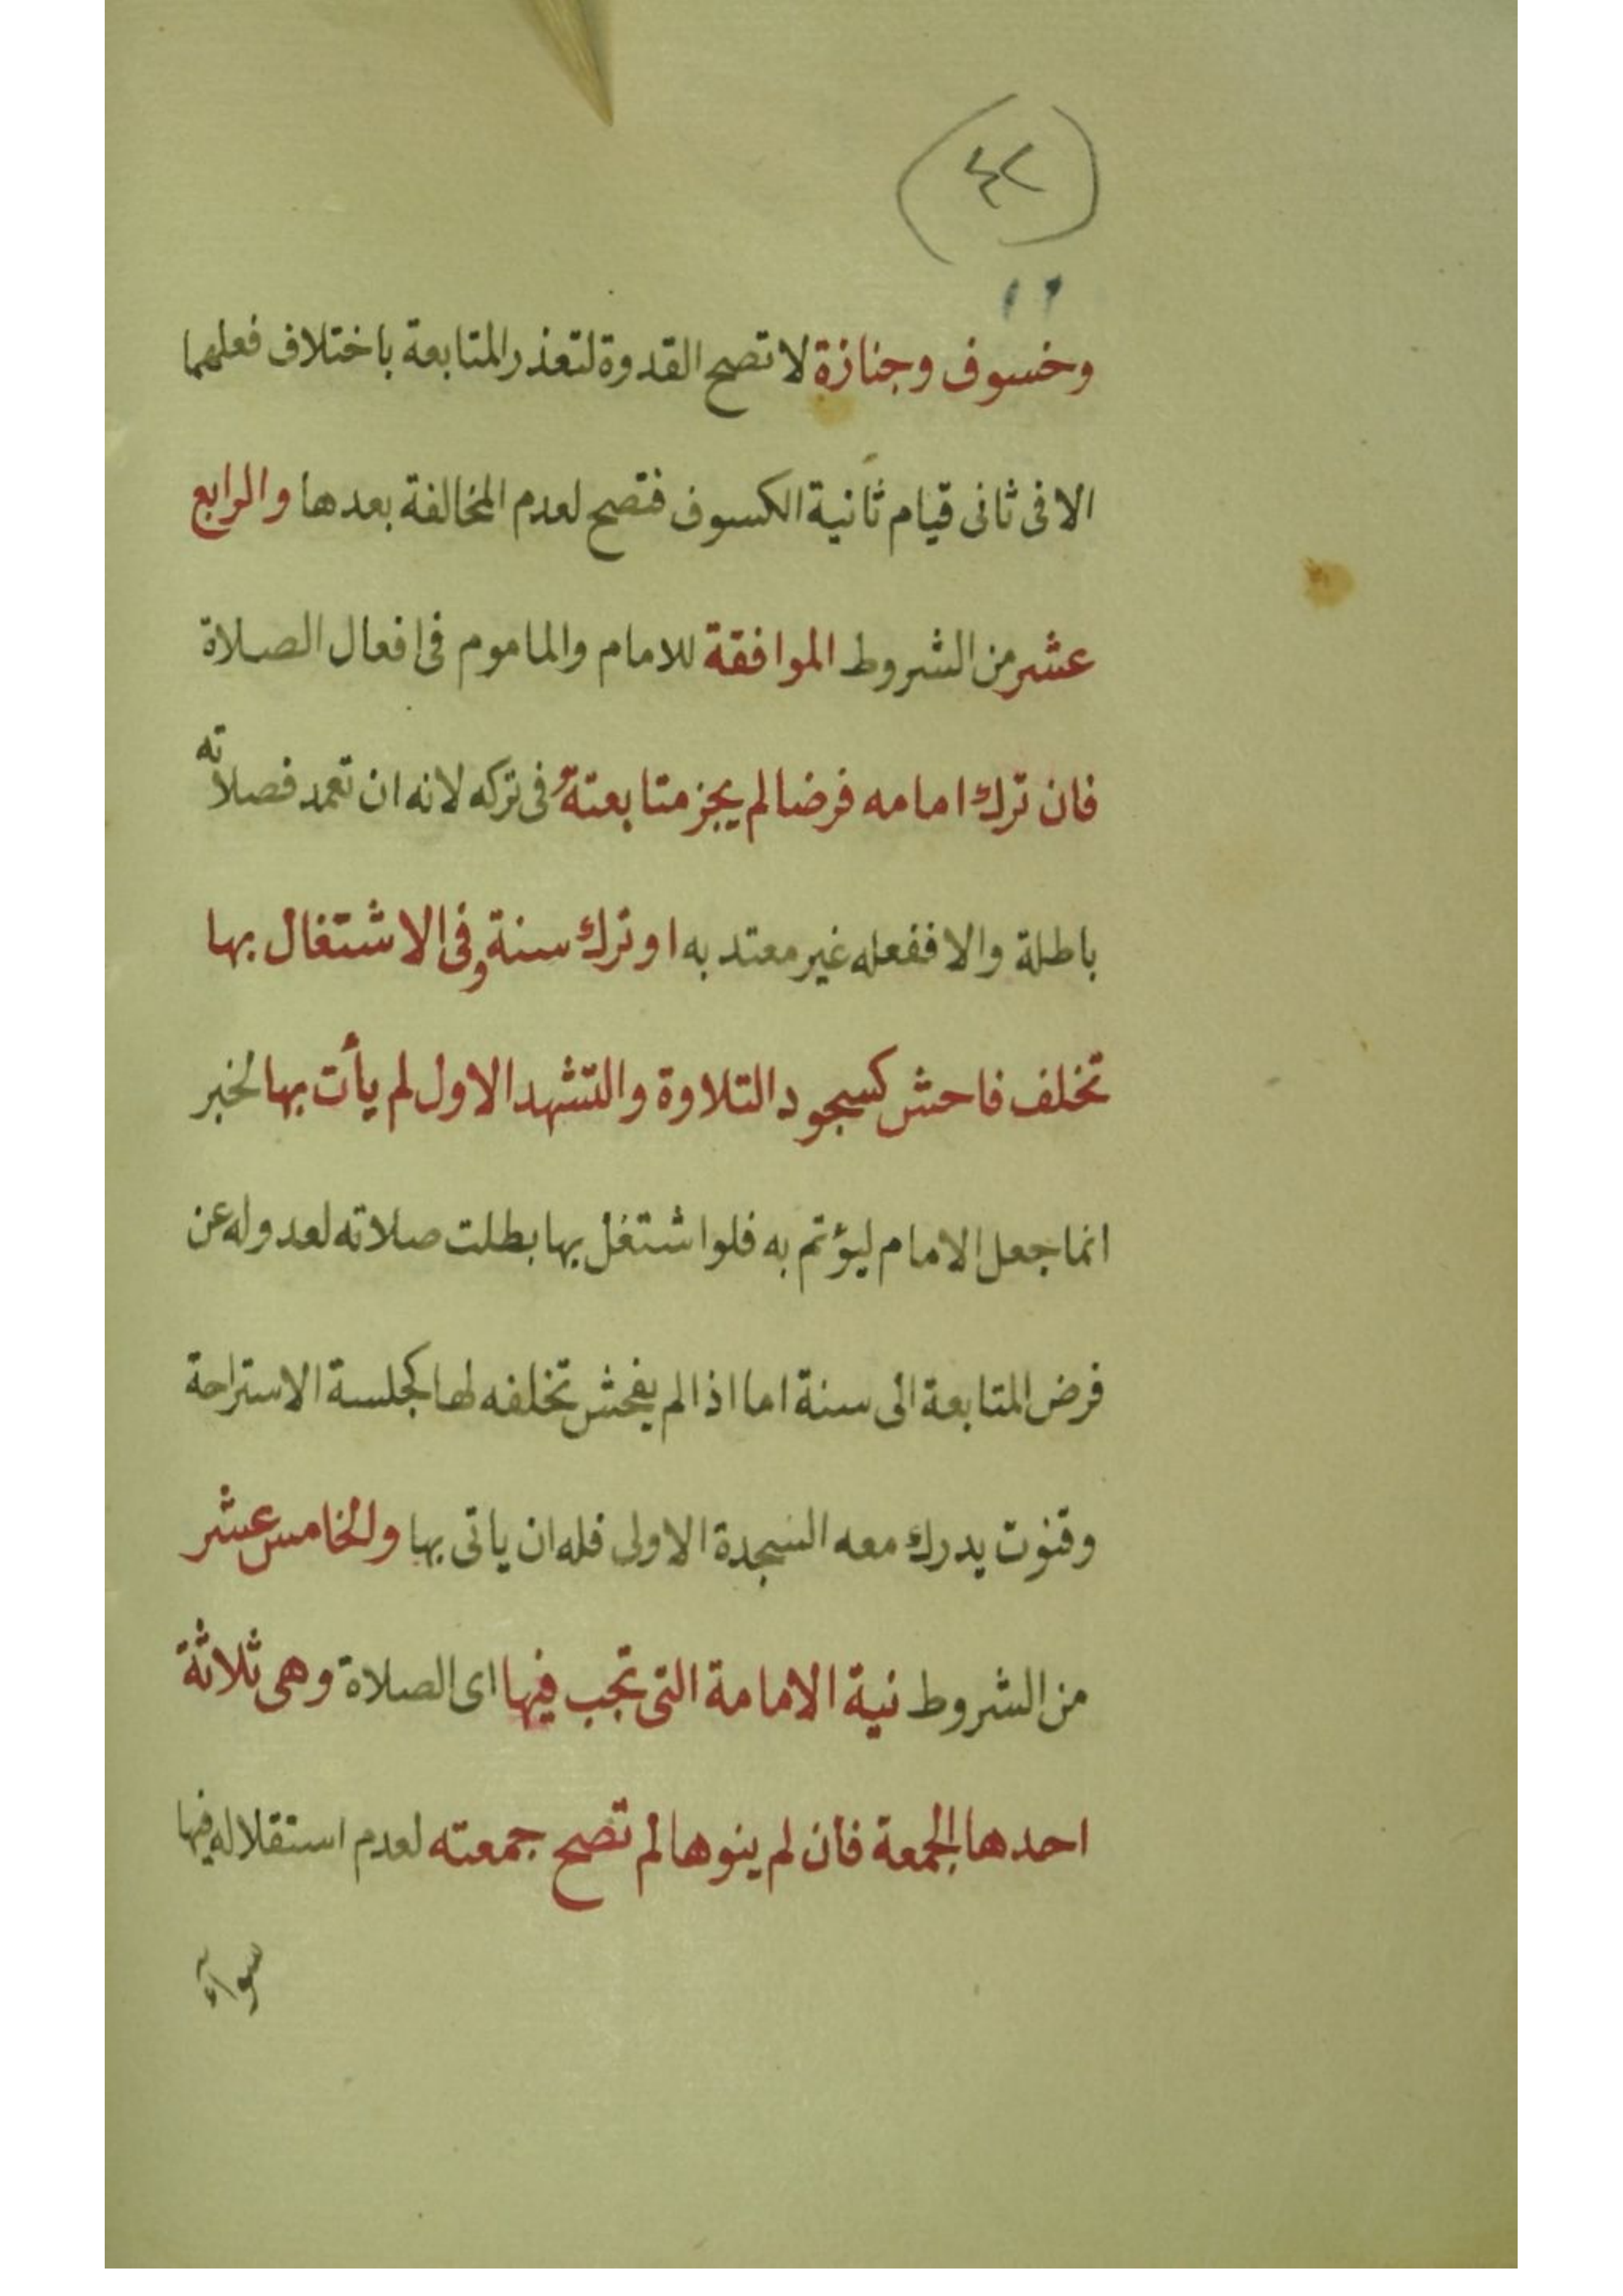 (٤٢)
وخسوف وجنازة لا تصح القدوة لتعذر المتابعة باختلاف فعلهما
الا فى ثانى قيام ثانية الكسوف فتصح لعدم المخالفة بعدها والرابع
عشر من الشروط الموافقة للامام والماموم فى افعال الصلاة
فان ترك امامه فرضا لم يجز متابعتة فى تركه لانه ان تعمد فصلاته
باطلة والا ففعله غير معتد به او ترك سنة وفى الاشتغال بها
تخلف فاحش كسجود التلاوة والتشهد الاول لم يأت بها لخبر
انما جعل الامام ليؤتم به فلو اشتغل بها بطلت صلاته لعدوله عن
فرض المتابعة الى سنة اما اذا لم يفحش تخلفه لها كجلسة الاستراحة
وقنوت يدرك معه السجدة الاولى فله ان ياتى بها والخامس عشر
من الشروط نية الامامة التى تجب فيها اى الصلاة وهى ثلاثة
احدها الجمعة فان لم ينوها لم تصح جمعته لعدم استقلاله فيها
سوآء